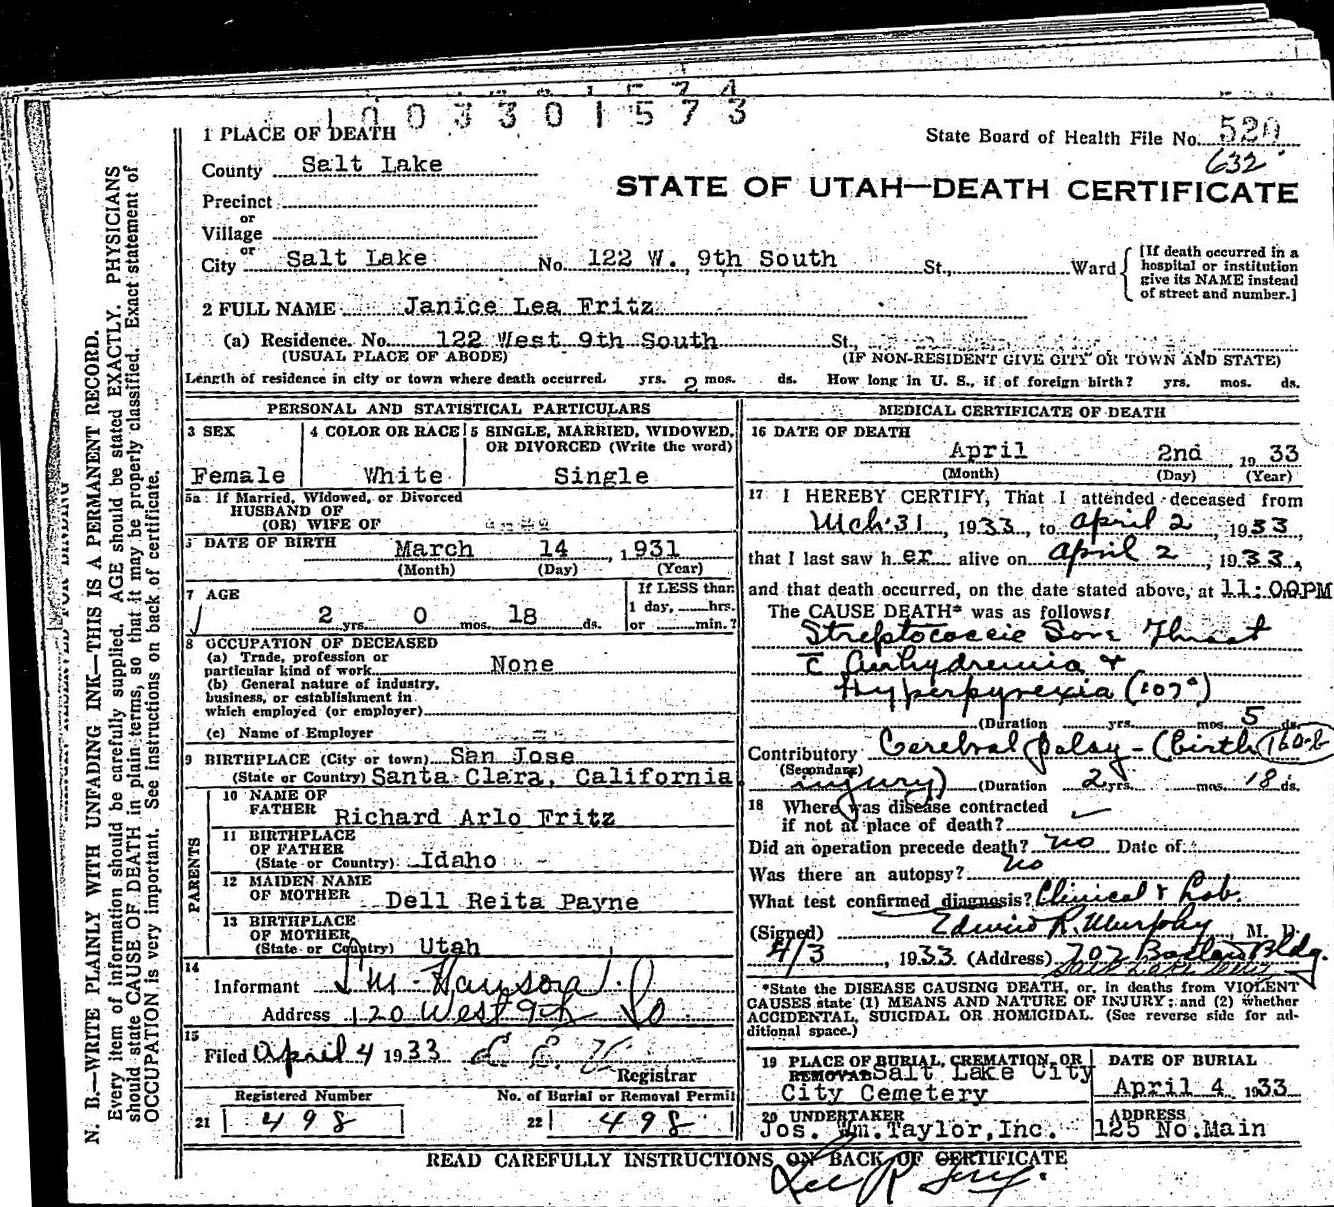 1003301573
1 PLACE OF DEATH
State Board of Health File No. 520
632
County Salt Lake
STATE OF UTAH—DEATH CERTIFICATE
Precinct
or
Village
or
City Salt Lake No. 122 W. 9th South St., Ward
[If death occurred in a
hospital or institution
give its NAME instead
of street and number.]
2 FULL NAME Janice Lea Fritz
(a) Residence. No. 122 West 9th South St.,
(USUAL PLACE OF ABODE) (IF NON-RESIDENT GIVE CITY OR TOWN AND STATE)
Length of residence in city or town where death occurred. yrs. 2 mos. ds. How long in U. S., if of foreign birth? yrs. mos. ds.
PERSONAL AND STATISTICAL PARTICULARS
3 SEX
Female
4 COLOR OR RACE
White
5 SINGLE, MARRIED, WIDOWED,
OR DIVORCED (Write the word)
Single
5a If Married, Widowed, or Divorced
HUSBAND OF
(OR) WIFE OF
DATE OF BIRTH March 14, 1931
(Month) (Day) (Year)
7 AGE
2 yrs. 0 mos. 18 ds.
If LESS than
1 day, hrs.
or min.?
8 OCCUPATION OF DECEASED
(a) Trade, profession or
particular kind of work None
(b) General nature of industry,
business, or establishment in
which employed (or employer)
(c) Name of Employer
9 BIRTHPLACE (City or town) San Jose
(State or Country) Santa Clara, California
PARENTS
10 NAME OF
FATHER Richard Arlo Fritz
11 BIRTHPLACE
OF FATHER
(State or Country) Idaho
12 MAIDEN NAME
OF MOTHER Dell Reita Payne
13 BIRTHPLACE
OF MOTHER
(State or Country) Utah
14
Informant
Address 120 West 9th So
15
Filed April 4 1933
Registrar
Registered Number
21 498
No. of Burial or Removal Permit
22 498
MEDICAL CERTIFICATE OF DEATH
16 DATE OF DEATH
April 2nd, 1933
(Month) (Day) (Year)
17 I HEREBY CERTIFY, That I attended deceased from
Mch 31, 1933, to April 2, 1933
that I last saw h er alive on April 2, 1933,
and that death occurred, on the date stated above, at 11:00PM
The CAUSE DEATH* was as follows:
Streptococcic Sore Throat
c̄ Anhydremia +
Hyperpyrexia (107°)
(Duration yrs. mos. 5 ds.
Contributory Cerebral palsy - (birth 160-b
(Secondary)
injury) (Duration 2 yrs. mos. 18 ds.
18 Where was disease contracted
if not at place of death?
Did an operation precede death? no Date of
Was there an autopsy? no
What test confirmed diagnosis? Clinical + Lab.
(Signed) Edwin R. Murphy, M. D.
4/3, 1933 (Address) 702 Boston Bldg.
Salt Lake City
*State the DISEASE CAUSING DEATH, or, in deaths from VIOLENT
CAUSES state (1) MEANS AND NATURE OF INJURY; and (2) whether
ACCIDENTAL, SUICIDAL OR HOMICIDAL. (See reverse side for ad-
ditional space.)
19 PLACE OF BURIAL, CREMATION, OR
REMOVAL Salt Lake City
City Cemetery
DATE OF BURIAL
April 4, 1933
20 UNDERTAKER
Jos. Wm. Taylor, Inc.
ADDRESS
125 No. Main
READ CAREFULLY INSTRUCTIONS ON BACK OF CERTIFICATE
N. B.—WRITE PLAINLY WITH UNFADING INK—THIS IS A PERMANENT RECORD.
Every item of information should be carefully supplied. AGE should be stated EXACTLY. PHYSICIANS
should state CAUSE OF DEATH in plain terms, so that it may be properly classified. Exact statement of
OCCUPATION is very important. See instructions on back of certificate.